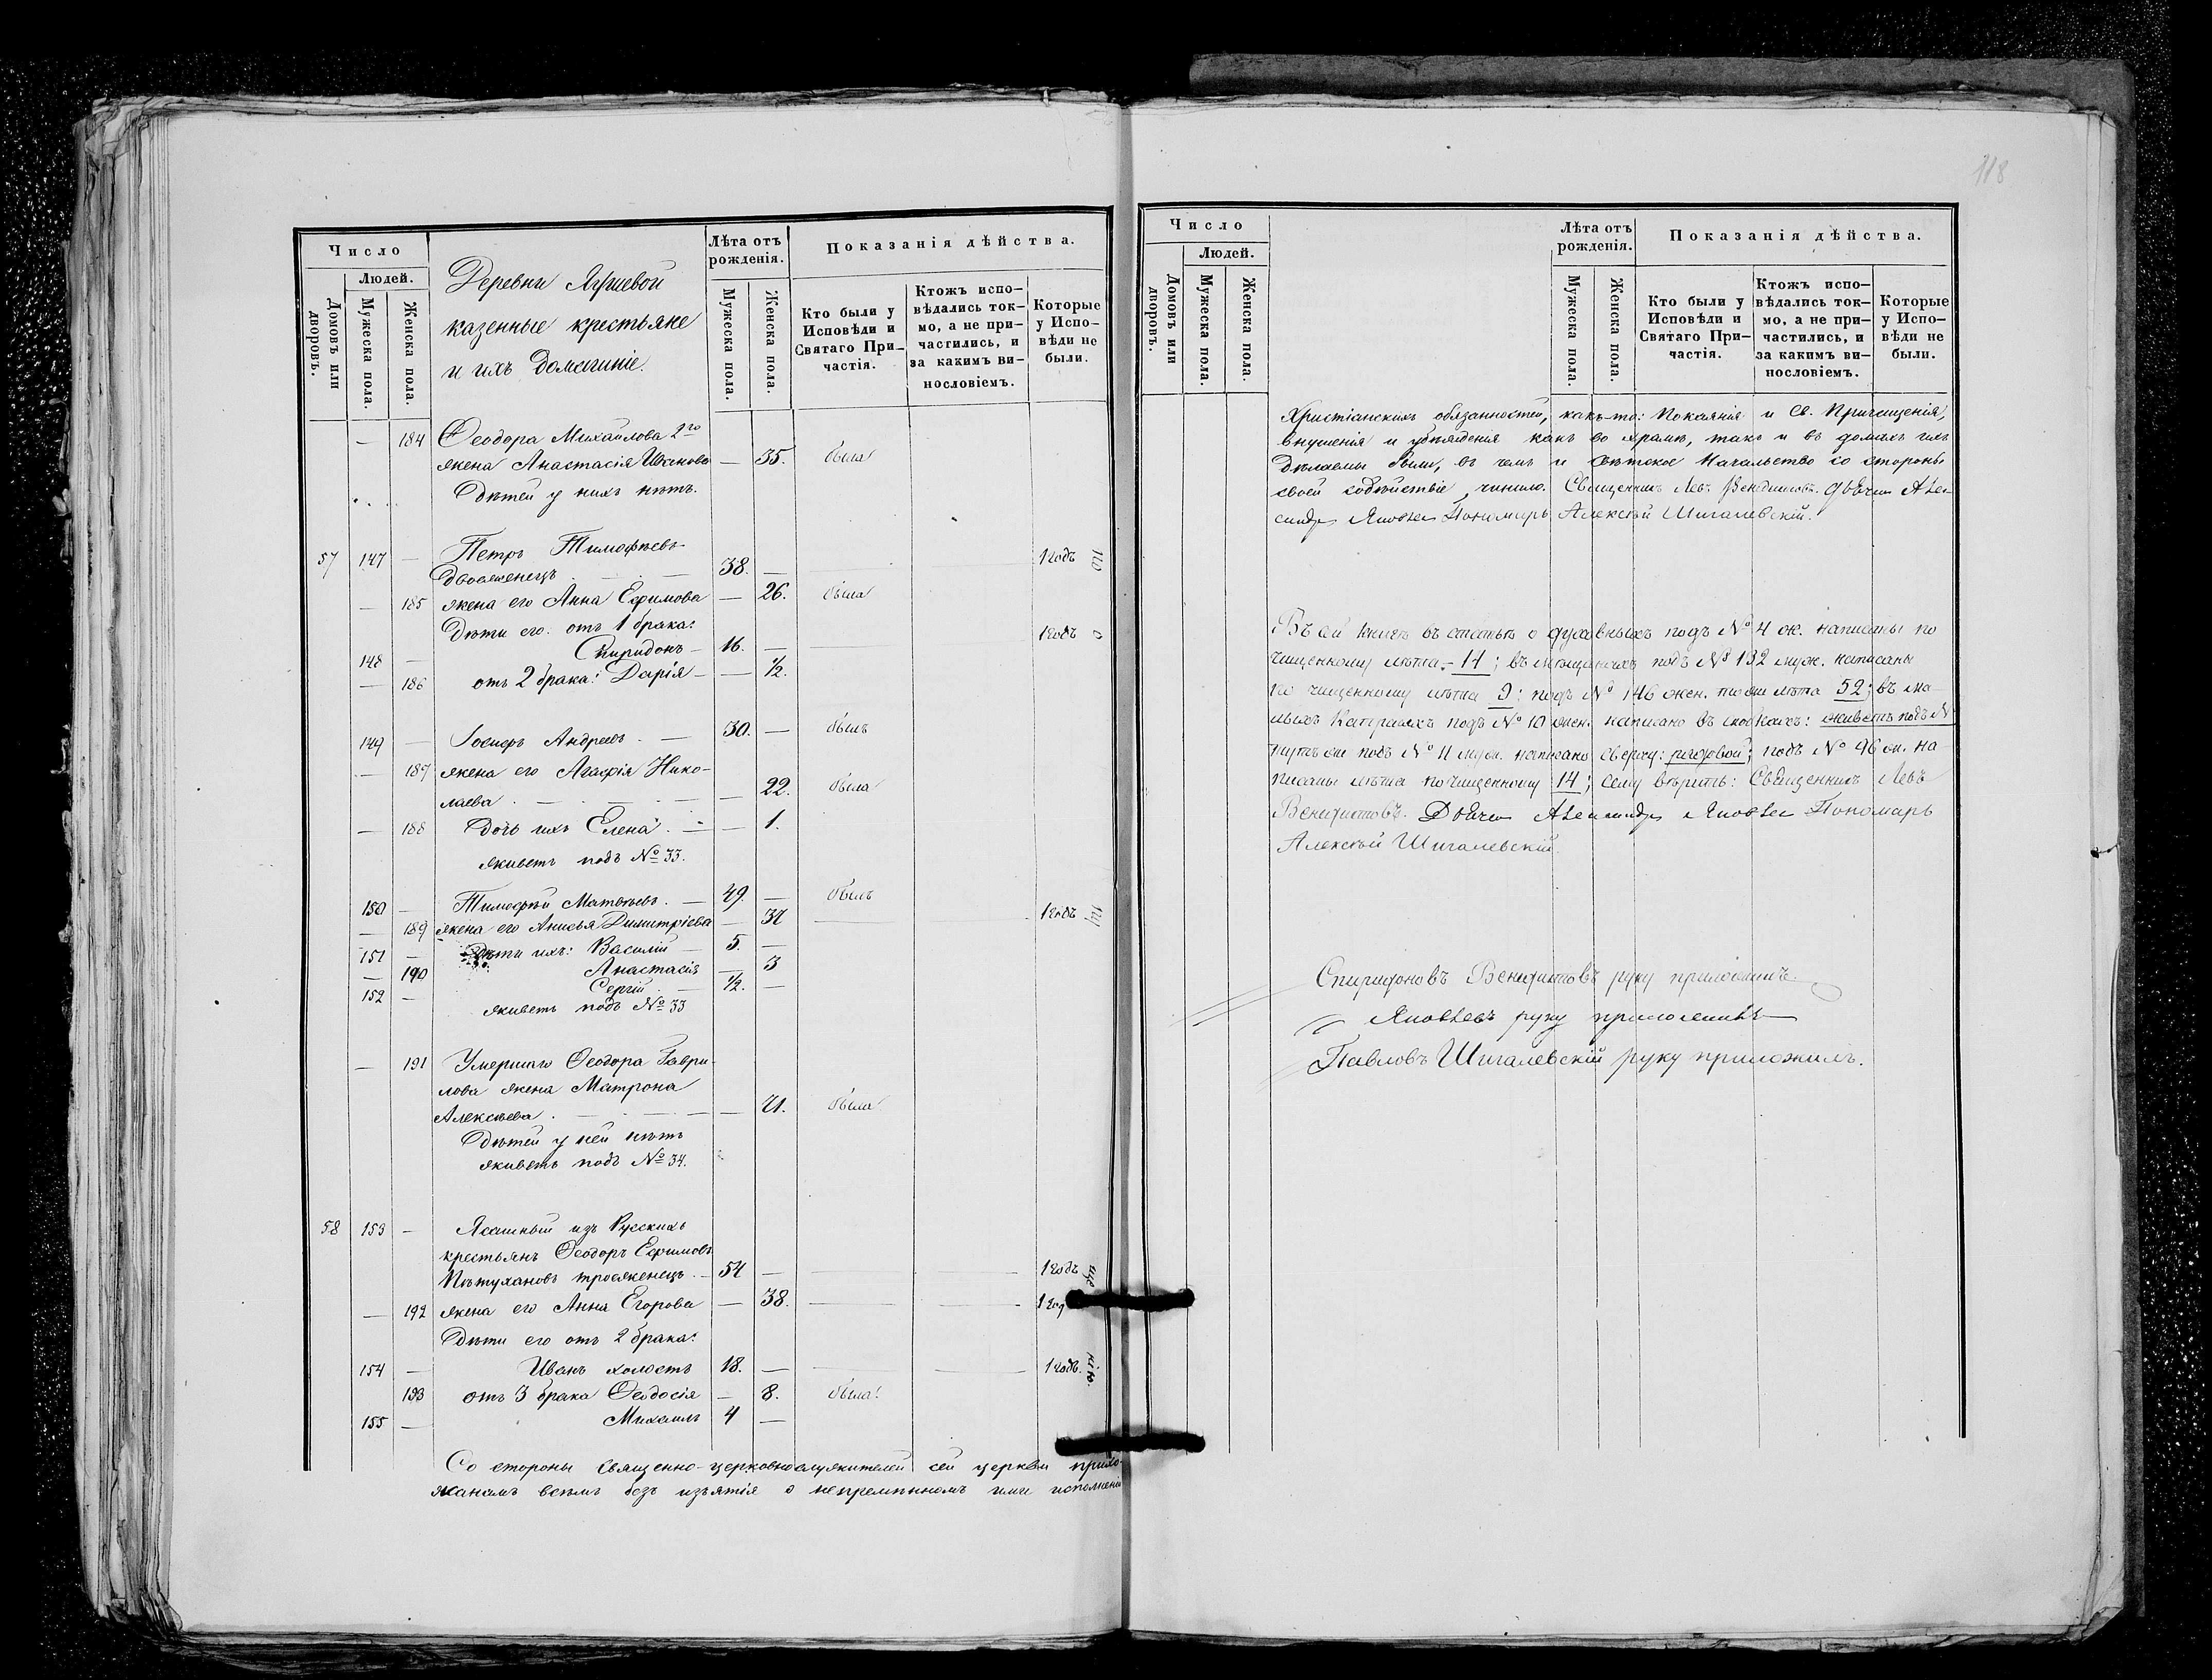 118
Число
Людей.
Домовъ или дворовъ.
Мужеска пола.
Женска пола.
Деревни
казенные крестьяне
и ихъ домашніе.
Лѣта отъ рожденія.
Мужеска пола.
Женска пола.
Показанія дѣйства.
Кто были у Исповѣди и Святаго Причастія.
Ктожъ исповѣдались токмо, а не причастились, и за какимъ винословіемъ.
Которые у Исповѣди не были.
— 184 Ѳеодора Михайлова 2го
жена Анастасія Иванова — 35. была
Дѣтей у нихъ нѣтъ.
57 147 — Петръ Тимофѣевъ
двоеженецъ — 38. — 1 годъ
— 185 жена его Анна Ефимова — 26. была
Дѣти его: отъ 1 брака:
148 — Спиридонъ — 16. — 1 годъ
— 186 отъ 2 брака: Дарія — — 1/2.
149 — Іосифъ Андреевъ. — 30. — былъ
— 187 жена его Агафія Нико-
лаева. — — 22. была
— 188 Дочь ихъ Елена. — — 1.
живетъ подъ № 33.
150 — Тимофѣй Матвѣевъ. — 49. — былъ
— 189 жена его Анисья Димитріева — 37 1 годъ
151 — Дѣти ихъ: Василій — 5. —
— 190 Анастасія — 3
152 — Сергій — 1/2. —
живетъ подъ № 33
— 191 Умершаго Ѳеодора Гаври-
лова жена Матрона
Алексѣева. — — 41. была
Дѣтей у ней нѣтъ
живетъ подъ № 34.
58 153 — Ясашный изъ Русскихъ
крестьянъ Ѳеодоръ Ефимовъ
Пѣтуховъ троеженецъ. — 54 — 1 годъ
— 192 жена его Анна Егорова — 38. 1 год
Дѣти его отъ 2 брака:
154 — Иванъ холостъ 18. — 1 годъ.
193 отъ 3 брака Ѳеодосія — 8. была.
155 — Михаилъ 4 —
Со стороны священно-церковнослужителей сей церкви прихо-
жанамъ всѣмъ безъ изъятія о непремѣнномъ ими исполненіи
Число
Людей.
Домовъ или дворовъ.
Мужеска пола.
Женска пола.
Лѣта отъ рожденія.
Мужеска пола.
Женска пола.
Показанія дѣйства.
Кто были у Исповѣди и Святаго Причастія.
Ктожъ исповѣдались токмо, а не причастились, и за какимъ винословіемъ.
Которые у Исповѣди не были.
Христіанскихъ обязанностей, какъ-то: Покаянія и Св. Причащенія,
внушенія и убѣжденія какъ во храмѣ, такъ и въ домахъ ихъ
дѣлаемы были, въ чемъ и Свѣтское Начальство со стороны
своей содѣйствіе чинило. Священникъ Левъ Венедиктовъ. Дьячекъ Алек-
сандръ Яковлевъ Пономарь Алексѣй Шигалевскій.
Въ сей книгѣ въ статьѣ о духовныхъ подъ № 4 ж. написаны по
чищенному лѣта — 14; въ мѣщанахъ подъ № 132 муж. написаны
по чищенному лѣта 9; подъ № 146 жен. лѣта 52; въ
подъ № 10 жен. написано въ скобкахъ: живетъ подъ №
подъ № 11 муж. написано сверху: рядовой; подъ № 96 ж. на-
писаны лѣта по чищенному 14; сему вѣрить: Священникъ Левъ
Венедиктовъ. Дьячекъ Александръ Яковлевъ Пономарь
Алексѣй Шигалевскій.
Спиридоновъ Венедиктовъ руку приложилъ.
Яковлевъ руку приложилъ
Павловъ Шигалевскій руку приложилъ.